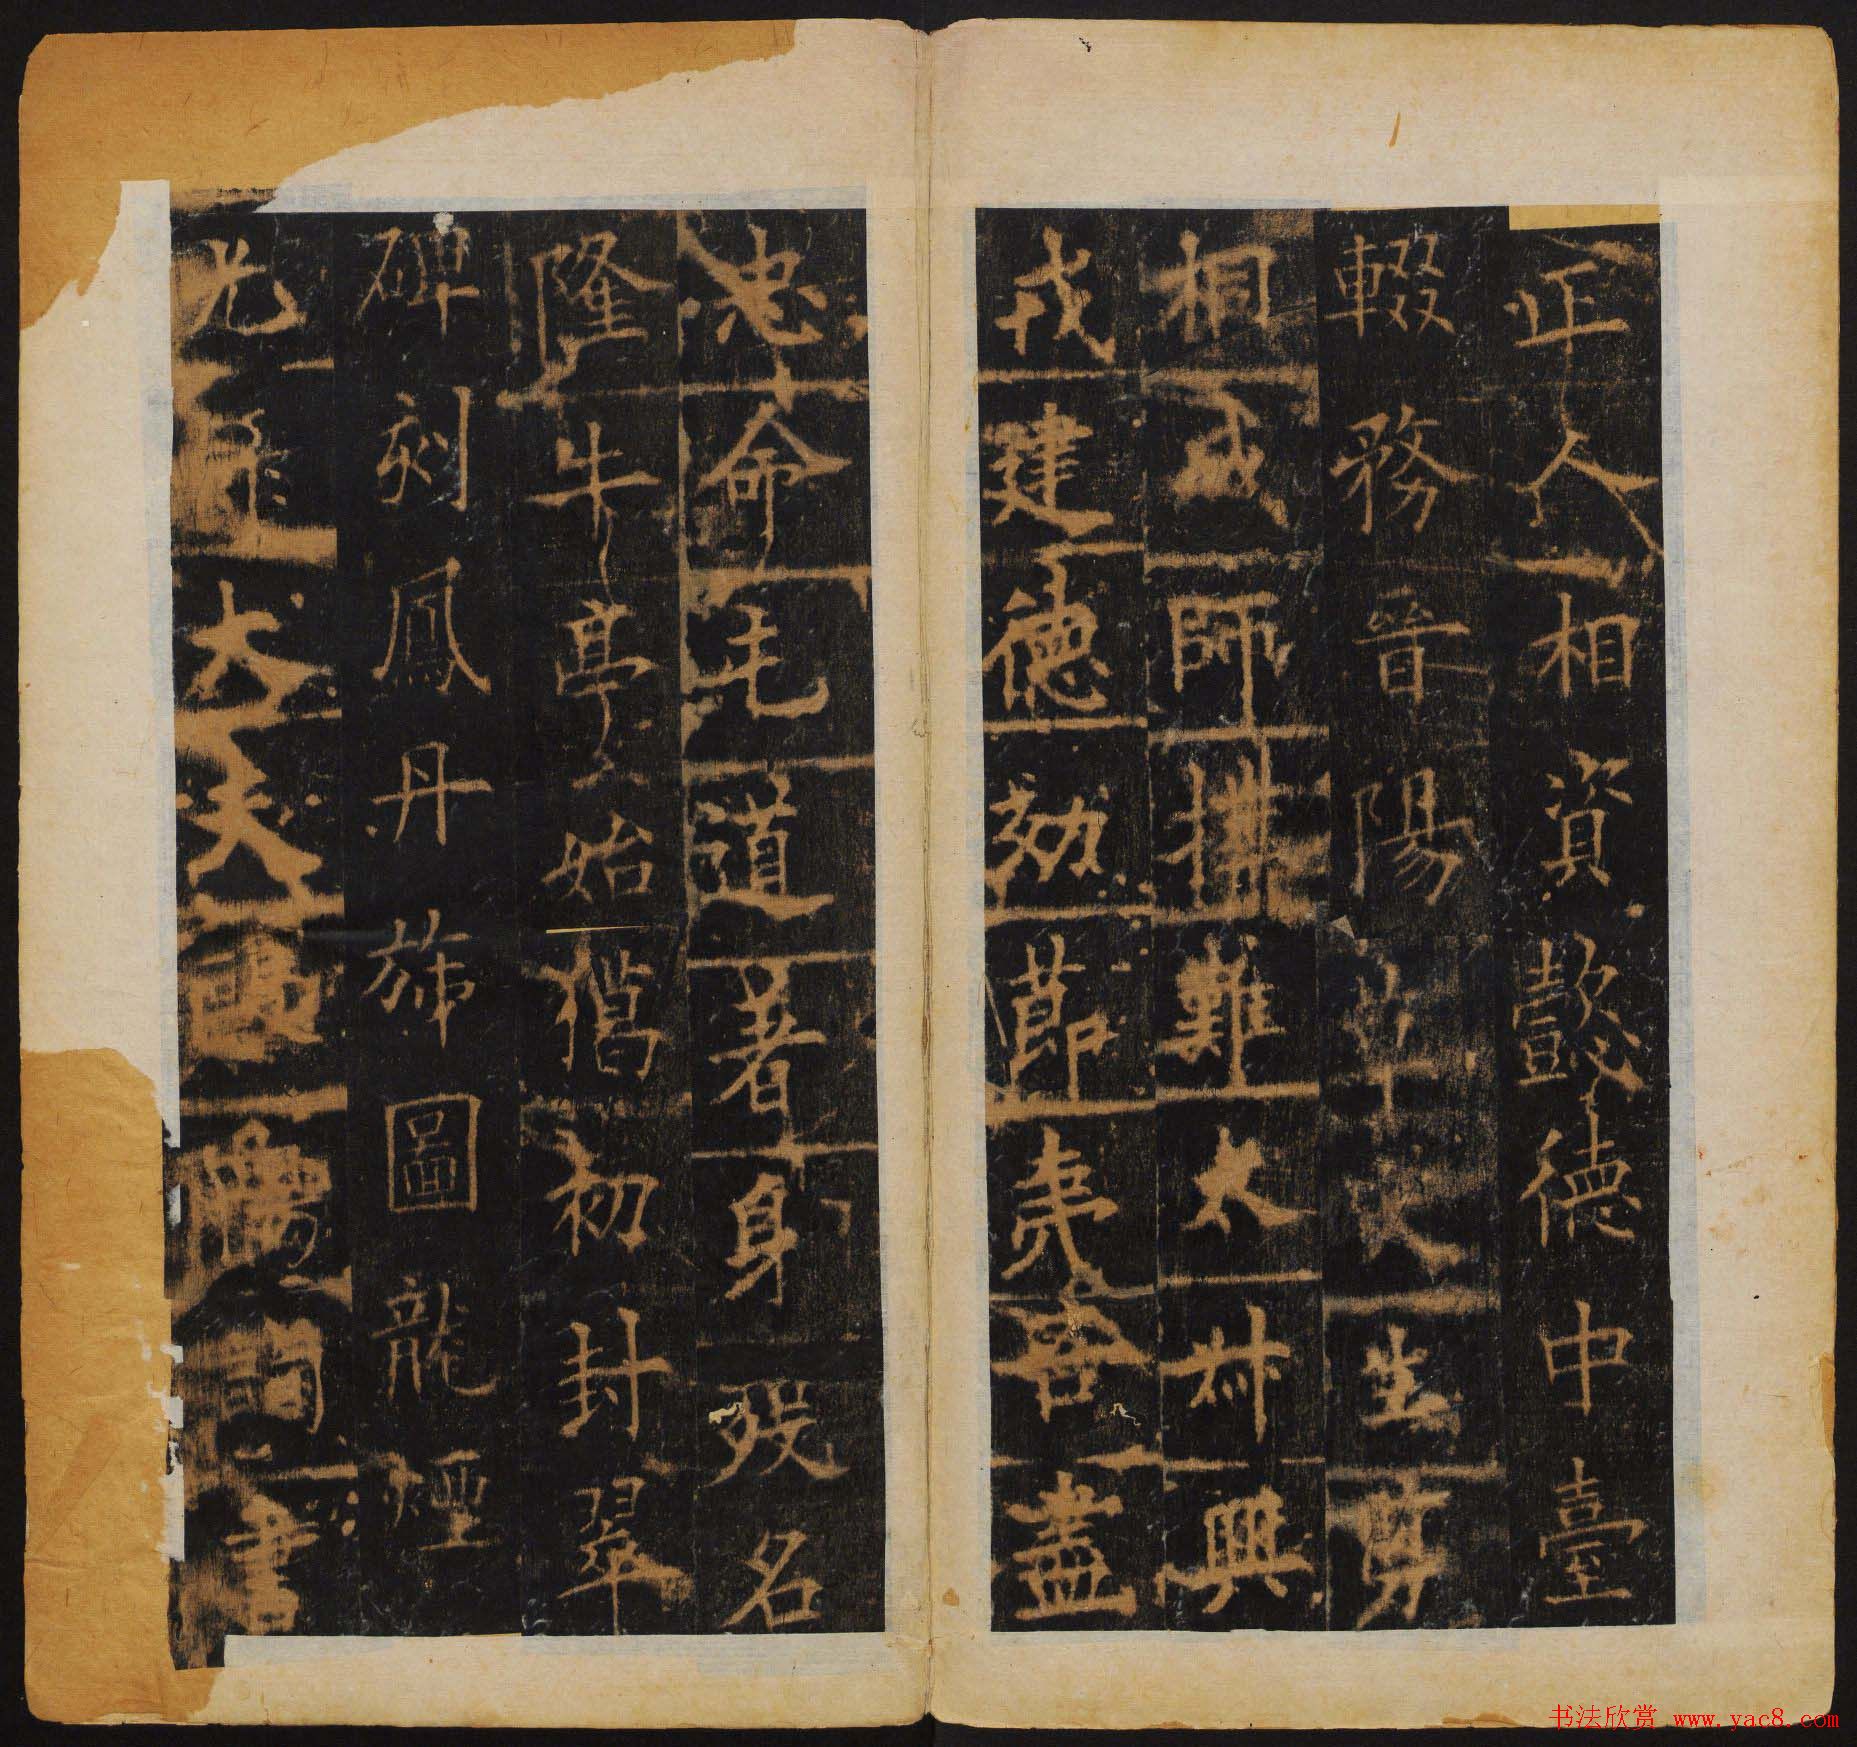 正人相資懿德中臺
輟務晉陽
生剪
桐
師揚難太叔興
戎建德効節夷吾盡
忠命毛道著身歿名
隆牛亭始犒初封翠
碑刻鳳丹旆圖龍煙
光
大夫
詞書
书法欣赏 www.yac8.com